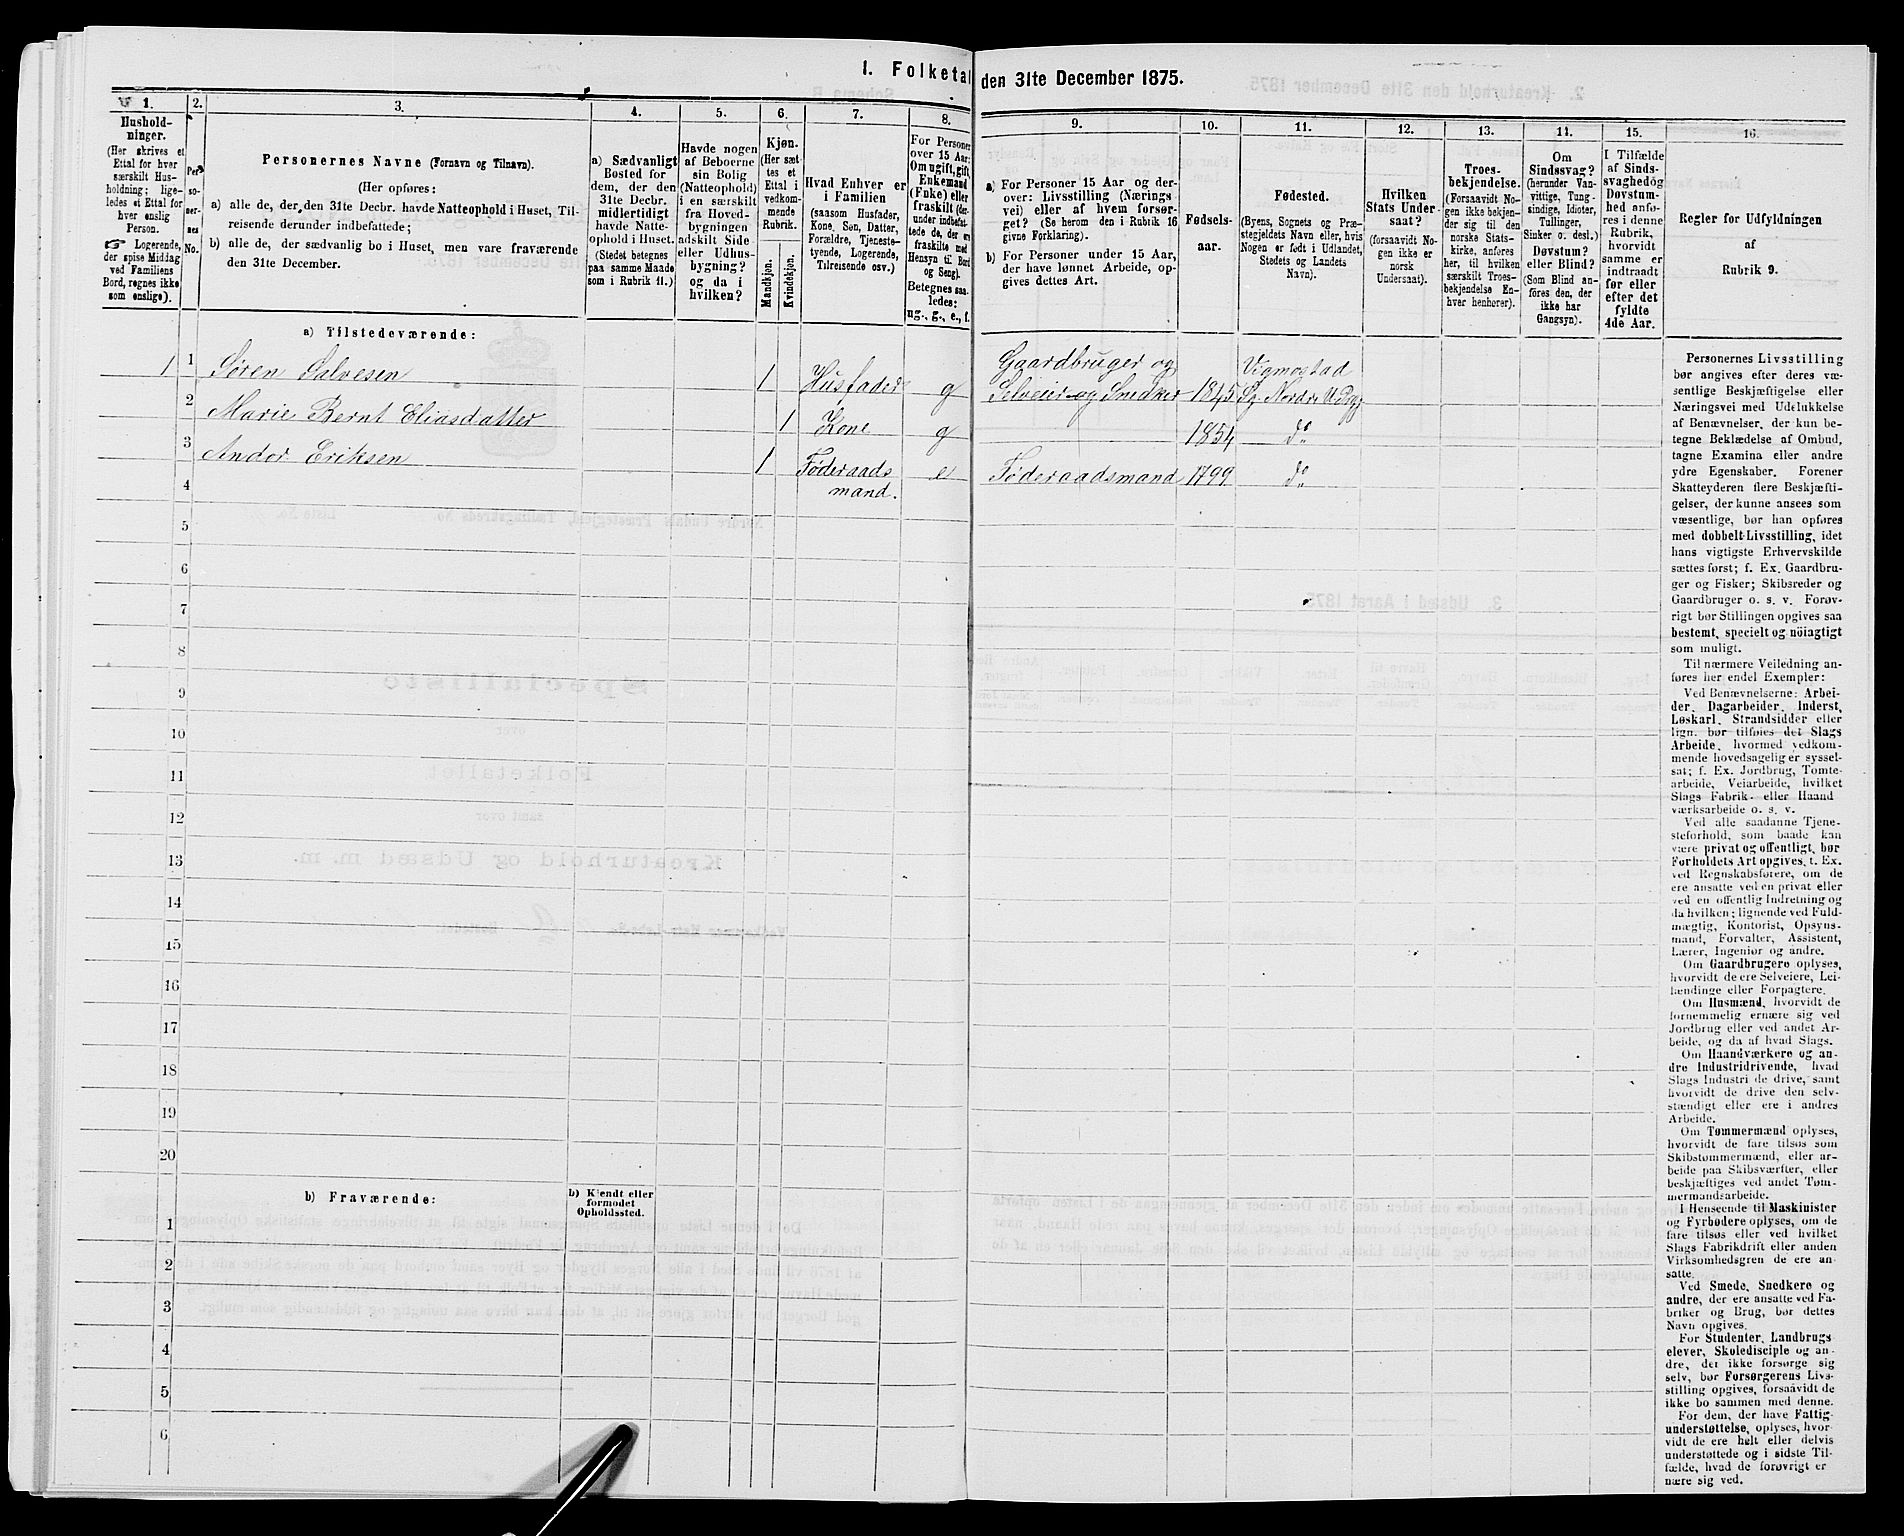 1. Folketal den 31te December 1875.
1.
Hushold-
ninger.
(Her skrives et
Ettal for hver
særskilt Hus-
holdning; lige-
ledes et Ettal for
hver enslig
Person.
☞ Logerende,
der spise Middag
ved Familiens
Bord, regnes ikke
som enslige).
2.
Per-
so-
ner-
nes
No.
3.
Personernes Navne (Fornavn og Tilnavn).
(Her opføres:
a) alle de, der den 31te Decbr. havde Natteophold i Huset, Til-
reisende derunder indbefattede;
b) alle de, der sædvanlig bo i Huset, men vare fraværende
den 31te December.
4.
a) Sædvanligt
Bosted for
dem, der den
31te Decbr.
midlertidigt
havde Natte-
ophold i Huset.
(Stedet betegnes
paa samme Maade
som i Rubrik 11.)
5.
Havde nogen
af Beboerne
sin Bolig
(Natteophold)
i en særskilt
fra Hoved-
bygningen
adskilt Side-
eller Udhus-
bygning?
og da i
hvilken?
6.
Kjøn.
(Her sæt-
tes et
Ettal i
vedkom-
mende
Rubrik.
Mandkjøn.
Kvindekjøn.
7.
Hvad Enhver er
i Familien
(saasom Husfader,
Kone, Søn, Datter,
Forældre, Tjeneste-
tyende, Logerende,
Tilreisende osv.)
8.
For Personer
over 15 Aar:
Om ugift, gift,
Enkemand
(Enke) eller
fraskilt (der-
under indbefat-
tede de, der ere
fraskilte med
Hensyn til Bord
og Seng).
Betegnes saa-
ledes:
ug., g., e., f.
9.
a) For Personer 15 Aar og der-
over: Livsstilling (Nærings
vei) eller af hvem forsør-
get? (Se herom den i Rubrik 16
givne Forklaring).
b) For Personer under 15 Aar,
der have lønnet Arbeide, op-
gives dettes Art.
10.
Fødsels-
aar.
11.
Fødested.
(Byens, Sognets og Præ-
stegjeldets Navn eller, hvis
Nogen er født i Udlandet,
Stedets og Landets
Navn).
12.
Hvilken
Stats Under-
saat?
(forsaavidt No-
gen ikke er
norsk
Undersaat).
13.
Troes-
bekjendelse.
(Forsaavidt No-
gen ikke bekjen-
der sig til den
norske Stats-
kirke, anføres
her, til hvilken
særskilt Troes-
bekjendelse En-
hver henhører).
14.
Om
Sindssvag?
(herunder Van-
vittige, Tung-
sindige, Idioter,
Tullinger,
Sinker o. desl.)
Døvstum?
eller Blind?
(Som Blind an-
føres den, der
ikke har
Gangsyn).
15.
I Tilfælde
af Sinds-
svaghed og
Døvstum-
hed anfø-
res i denne
Rubrik,
hvorvidt
samme er
indtraadt
før eller
efter det
fyldte
4de Aar.
16.
Regler for Udfyldningen
af
Rubrik 9.
a) Tilstedeværende:
1 1 Søren Salvesen 1 Husfader g Gaardbruger og
Selveier og Snedker 1845 Vigmostad
Sg. Nordre Ud. Pgj
2 Marie Bernt Eliasdatter 1 Kone g 1854 do
3 Andor Eriksen 1 Føderaads
mand. e Føderaadsmand 1799 do
4
5
6
7
8
9
10
11
12
13
14
15
16
17
18
19
20
b) Fraværende:
b) Kjendt eller
formodet
Opholdssted.
1
2
3
4
5
6
Personernes Livsstilling
bør angives efter deres væ-
sentlige Beskjæftigelse eller
Næringsvei med Udelukkelse
af Benævnelser, der kun be-
tegne Beklædelse af Ombud,
tagne Examina eller andre
ydre Egenskaber. Forener
Skatteyderen flere Beskjæfti-
gelser, der kunne ansees som
væsentlige, bør han opføres
med dobbelt Livsstilling, idet
hans vigtigste Erhvervskilde
sættes først; f. Ex. Gaardbru-
ger og Fisker; Skibsreder og
Gaardbruger o. s. v. Forøv-
rigt bør Stillingen opgives saa
bestemt, specielt og nöiagtigt
som muligt.
Til nærmere Veiledning an-
føres her endel Exempler:
Ved Benævnelserne: Arbei-
der, Dagarbeider, Inderst,
Løskarl, Strandsidder eller
lign. bør tilføies det Slags
Arbeide, hvormed vedkom-
mende hovedsagelig er syssel-
sat; f. Ex. Jordbrug, Tomte-
arbeide, Veiarbeide, hvilket
Slags Fabrik- eller Haand
værksarbeide o. s. v.
Ved alle saadanne Tjene-
steforhold, som baade kan
være privat og offentligt, bør
Forholdets Art opgives, t. Ex.
ved Regnskabsførere, om de
ere ansatte ved en privat eller
ved en offentlig Indretning og
da hvilken; lignende ved Fuld-
mægtig, Kontorist, Opsyns-
mand, Forvalter, Assistent,
Lærer, Ingeniør og andre.
Om Gaardbrugere oplyses,
hvorvidt de ere Selveiere, Lei-
lændinge eller Forpagtere.
Om Husmænd, hvorvidt de
fornemmelig ernære sig ved
Jordbrug eller ved andet Ar-
beide, og da af hvad Slags.
Om Haandværkere og an-
dre Industridrivende, hvad
Slags Industri de drive, samt
hvorvidt de drive den selv-
stændigt eller ere i andres
Arbeide.
Om Tømmermænd oplyses,
hvorvidt de fare tilsøs som
Skibstømmermænd, eller ar-
beide paa Skibsværfter, eller
beskjæftiges ved andet Tøm-
mermandsarbeide.
I Henseende til Maskinister
og Fyrbødere oplyses, om de
fare tilsøs eller ved hvilket
Slags Fabrikdrift eller anden
Virksomhedsgren de ere an-
satte.
Ved Smede, Snedkere og
andre, der ere ansatte ved Fa-
briker og Brug, bør dettes
Navn opgives.
For Studenter, Landbrugs
elever, Skoledisciple og an-
dre, der ikke forsørge sig
selv, bør Forsørgerens Livs-
stilling opgives, forsaavidt de
ikke bo sammen med denne.
For dem, der have Fattig-
understøttelse, oplyses, hvor-
vidt de ere helt eller delvis
understøttede og i sidste Til-
fælde, hvad de forøvrigt er
nære sig ved.